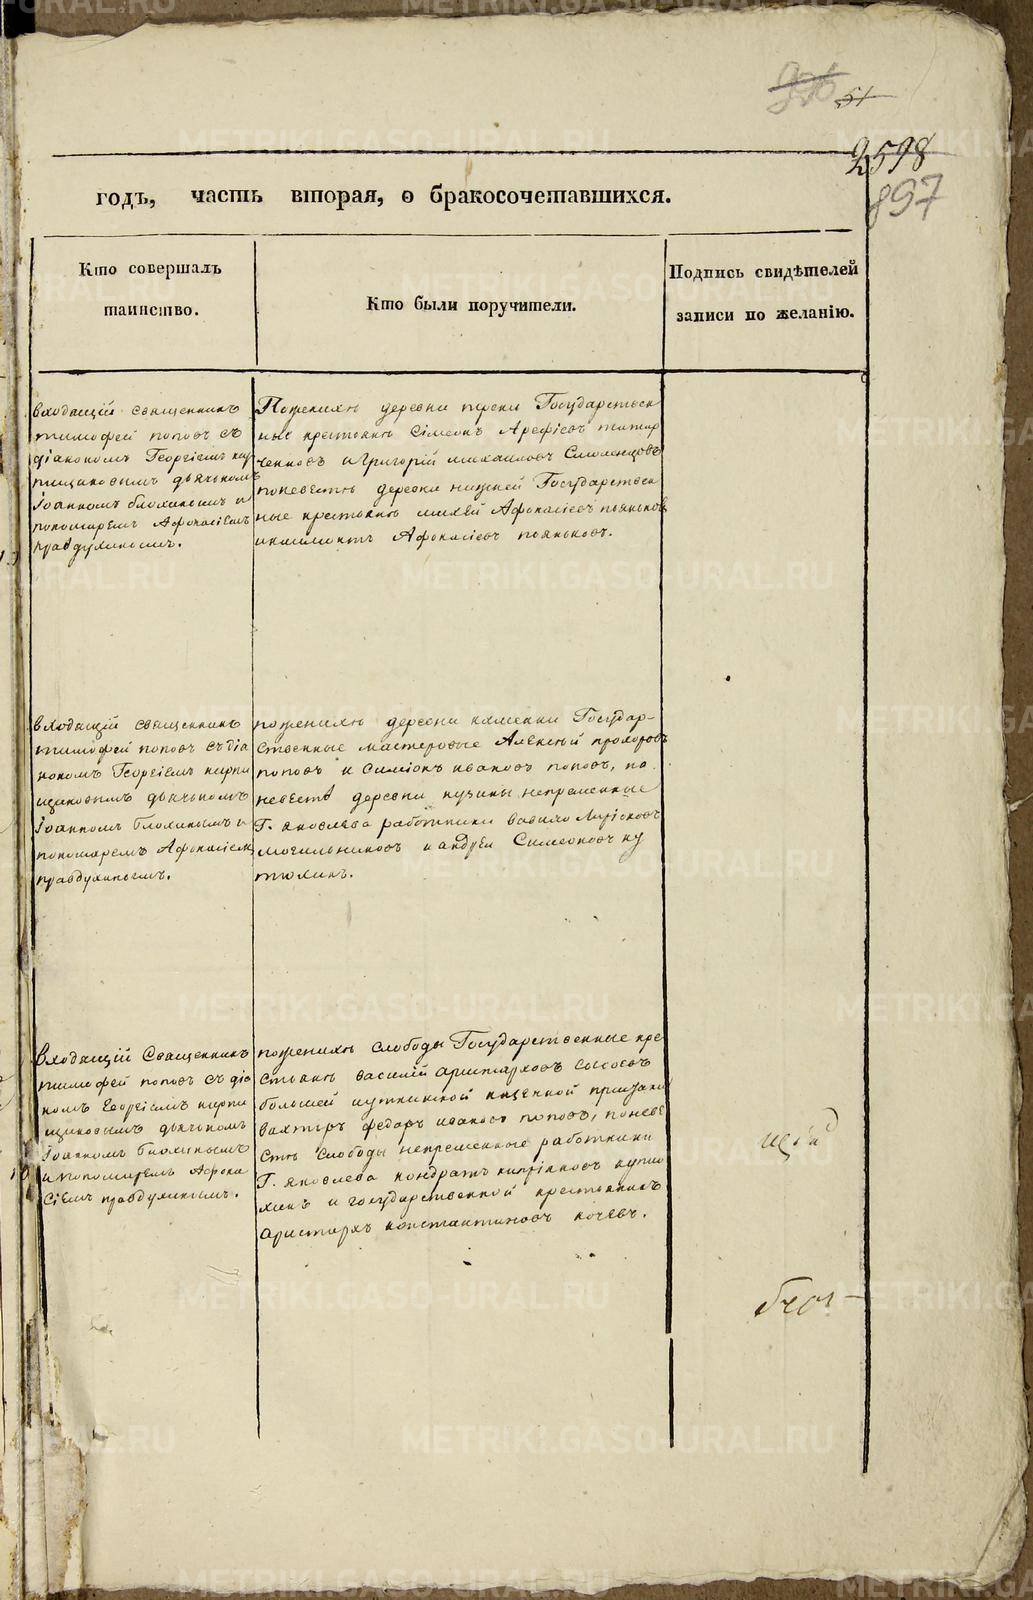 51
2598
897
годъ, часть вторая, о бракосочетавшихся.
Кто совершалъ
таинство.
Кто были поручители.
Подпись свидѣтелей
записи по желанію.
входящій священникъ
тимофей поповъ съ
діакономъ Георгіемъ кир
пищиковымъ дьячкомъ
Іоанномъ блохинымъ и
пономаремъ Афонасіемъ
правдухинымъ.
Поженихѣ деревни Государствен
ные крестьяне Сімеонъ Арефіевъ татар
ченковъ и Григорій михаиловъ Смоленцовъ
поневестѣ деревни нижней Государствен
ные крестьяне михей Афонасіевъ пояньковъ
иклиментъ Афонасіевъ пояньковъ.
входящій священникъ
тимофей поповъ съ діа
кономъ Георгіемъ кирпи
щиковымъ дьячкомъ
Іоанномъ Блохинымъ и
пономаремъ Афонасіемъ
правдухинымъ.
поженихѣ деревни каменки Государ-
ственные мастеровые Алексѣй прохоровъ
поповъ и Симіонъ ивановъ поповъ, по
невестѣ деревни кузины непременные
Г. яковлева работники вавило
могильниковъ и андрей Симеоновъ ку
тюхинъ.
Входящій Священникъ
тимофей поповъ съ діа
кономъ Георгіемъ кирпи
щиковымъ дьячкомъ
Іоанномъ Блохинымъ
и пономаремъ Афона
сіемъ правдухинымъ.
поженихѣ слободы Государственные кре
стьяне василій аристарховъ сысоевъ
большей уткинской казенной пристани
вахтеръ федоръ ивановъ поповъ, поневе
стѣ слободы непременные работники
Г. яковлева кондратъ кипріяновъ кутю
хинъ и государственной крестьянинъ
аристархъ константиновъ кочевъ.
METRIKI.GASO-URAL.RU